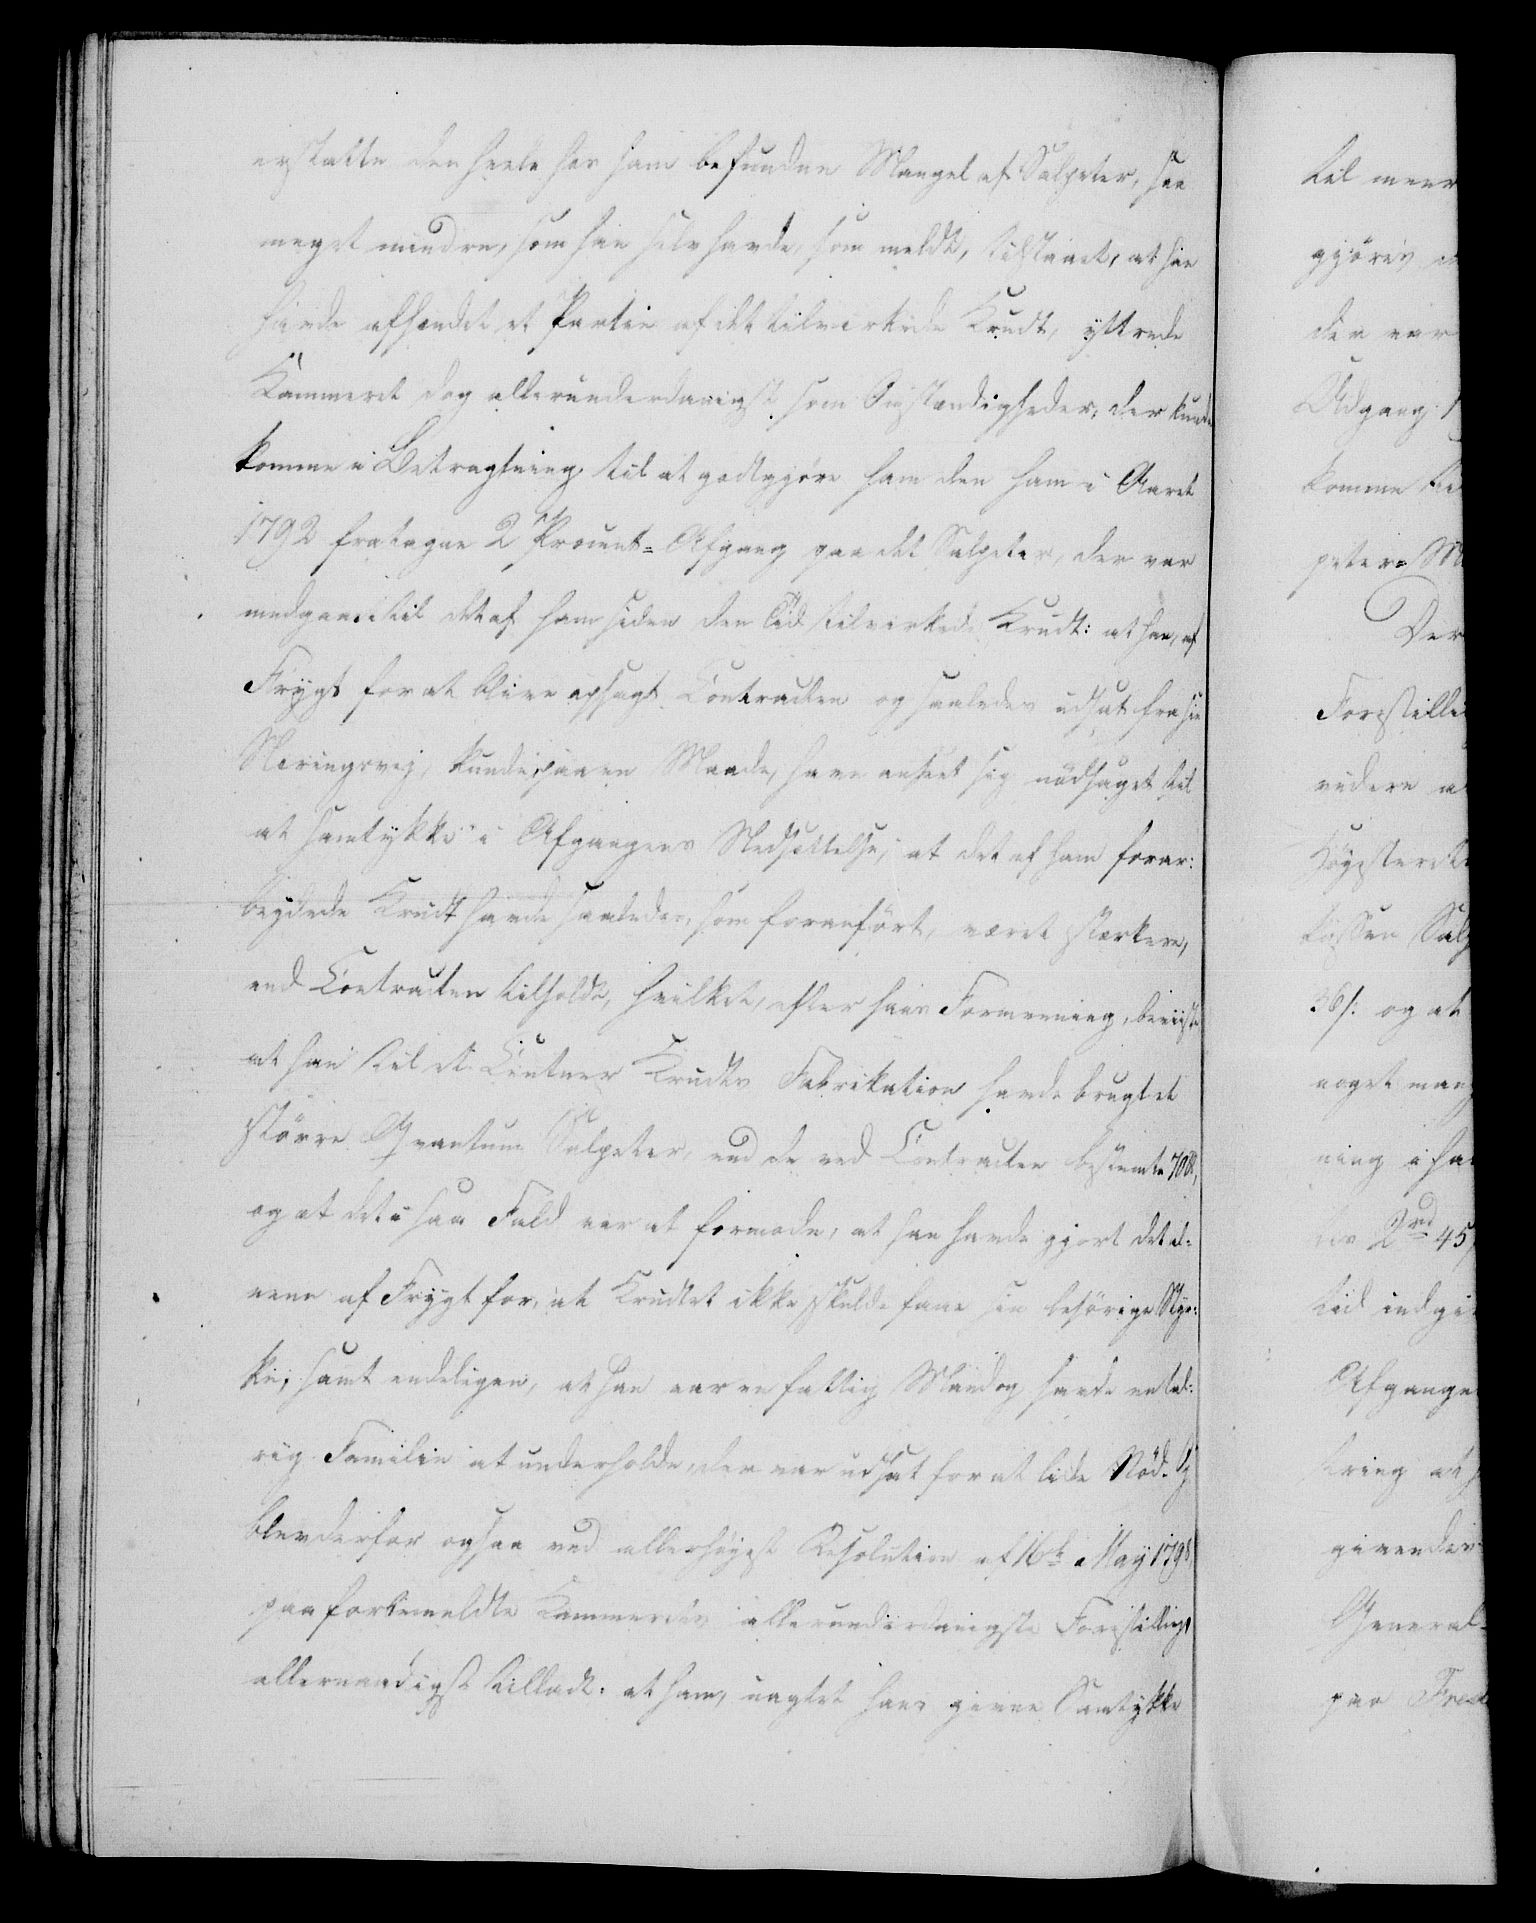 erstatte den heele hos ham befundne Mangel af Salpeter, saa
meget mindre, som han selv havde, som meldt, tilstaaet, at han
havde afhændet et Partie af det tilvirkede Krudt, yttrede
Kammeret dog allerunderdanigst som Omstændigheder, der kunde
komme i Betragtning til at godtgjøre ham den ham i Aaret
1792 fratagne 2 Procent-Afgang paa det Salpeter, der var
medgaaet til det af ham siden den Tid tilvirkede Krudt: at han, af
Frygt for at blive opsagt Contracten og saaledes udsat fra sin
Næringsvej, kunde, paa en Maade, have anseet sig nødsaget til
at samtykke i Afgangens Nedsættelse; at det af ham forar-
bejdede Krudt havde saaledes, som foranført, været stærkere,
end Contracten tilholdt, hvilket, efter hans Formening, beviiste
at han til et Centner Krudts Fabrikation havde brugt et
større Qvantum Salpeter, end de ved Contracten bestemte 70 ℔,
og at det i saa Fald var at formode, at han havde gjort det al-
eene af Frygt for, at Krudtet ikke skulde faae sin behørige Styr-
ke; samt endeligen, at han var en fattig Mand og havde en tal-
rig Familie at underholde, der var udsat for at lide Nød. Og
blev derfor ogsaa ved allerhøjest Resolution af 16de May 1798,
paa forbemeldte Kammerets allerunderdanigste Forestilling,
allernaadigst tilladt: at ham, uagtet hans givne Samtykke
til meer
gjøres
den var
Udgang
komme til
peter-
Der
Forestilli
videre
Højesteret
Salp
36 /: og at
noget mang
ning i ha
des 2rd 45
tid indgi
Afgange
kring at
givendes
General
paa Fred